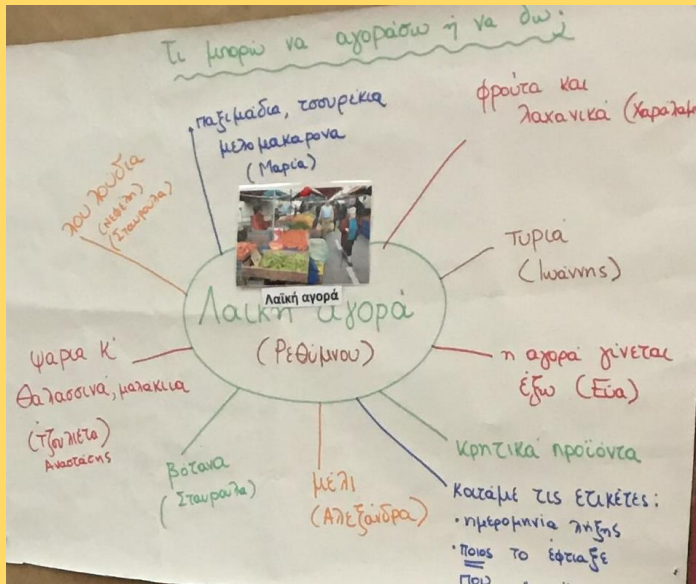 Τι μπορώ να αγοράσω ή να δω;
παξιμάδια, τσουρέκια
μελομακάρονα
(Μαρία)
φρούτα και
λαχανικά
λουλούδια
(Νεφέλη)
(Σταυρούλα)
τυριά
(Ιωάννης)
Λαϊκή αγορά
Λαϊκή αγορά
(Ρεθύμνου)
ψαρια κ'
θαλασσινά, μαλάκια
(Τζουλιέτα)
Αναστάσης
η αγορά γίνεται
έξω (Εύα)
βότανα
(Σταυρούλα)
μέλι
(Αλεξάνδρα)
κρητικά προϊόντα
κοιτάμε τις ετικέτες:
• ημερομηνία λήξης
• ποιος το έφτιαξε
που